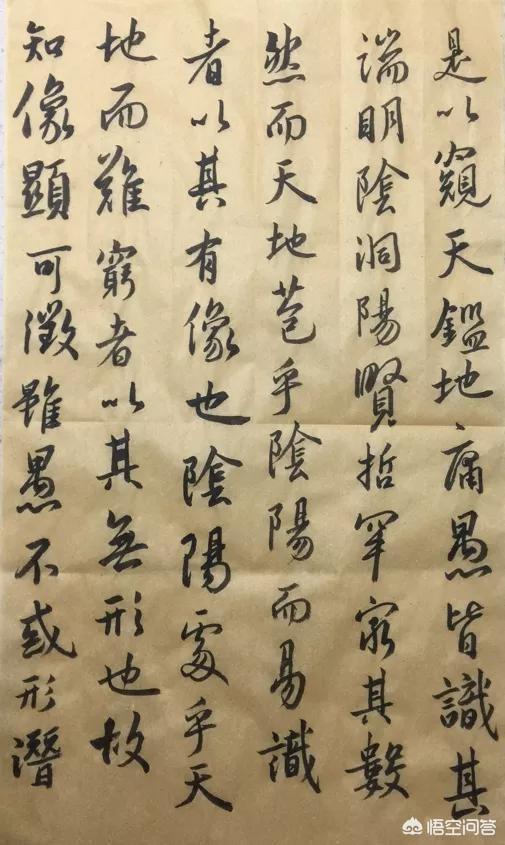 是以窺天鑑地庸愚皆識其
端明陰洞陽賢哲罕窮其數
然而天地苞乎陰陽而易識
者以其有像也陰陽處乎天
地而難窮者以其無形也故
知像顯可徵雖愚不惑形潛
悟空问答